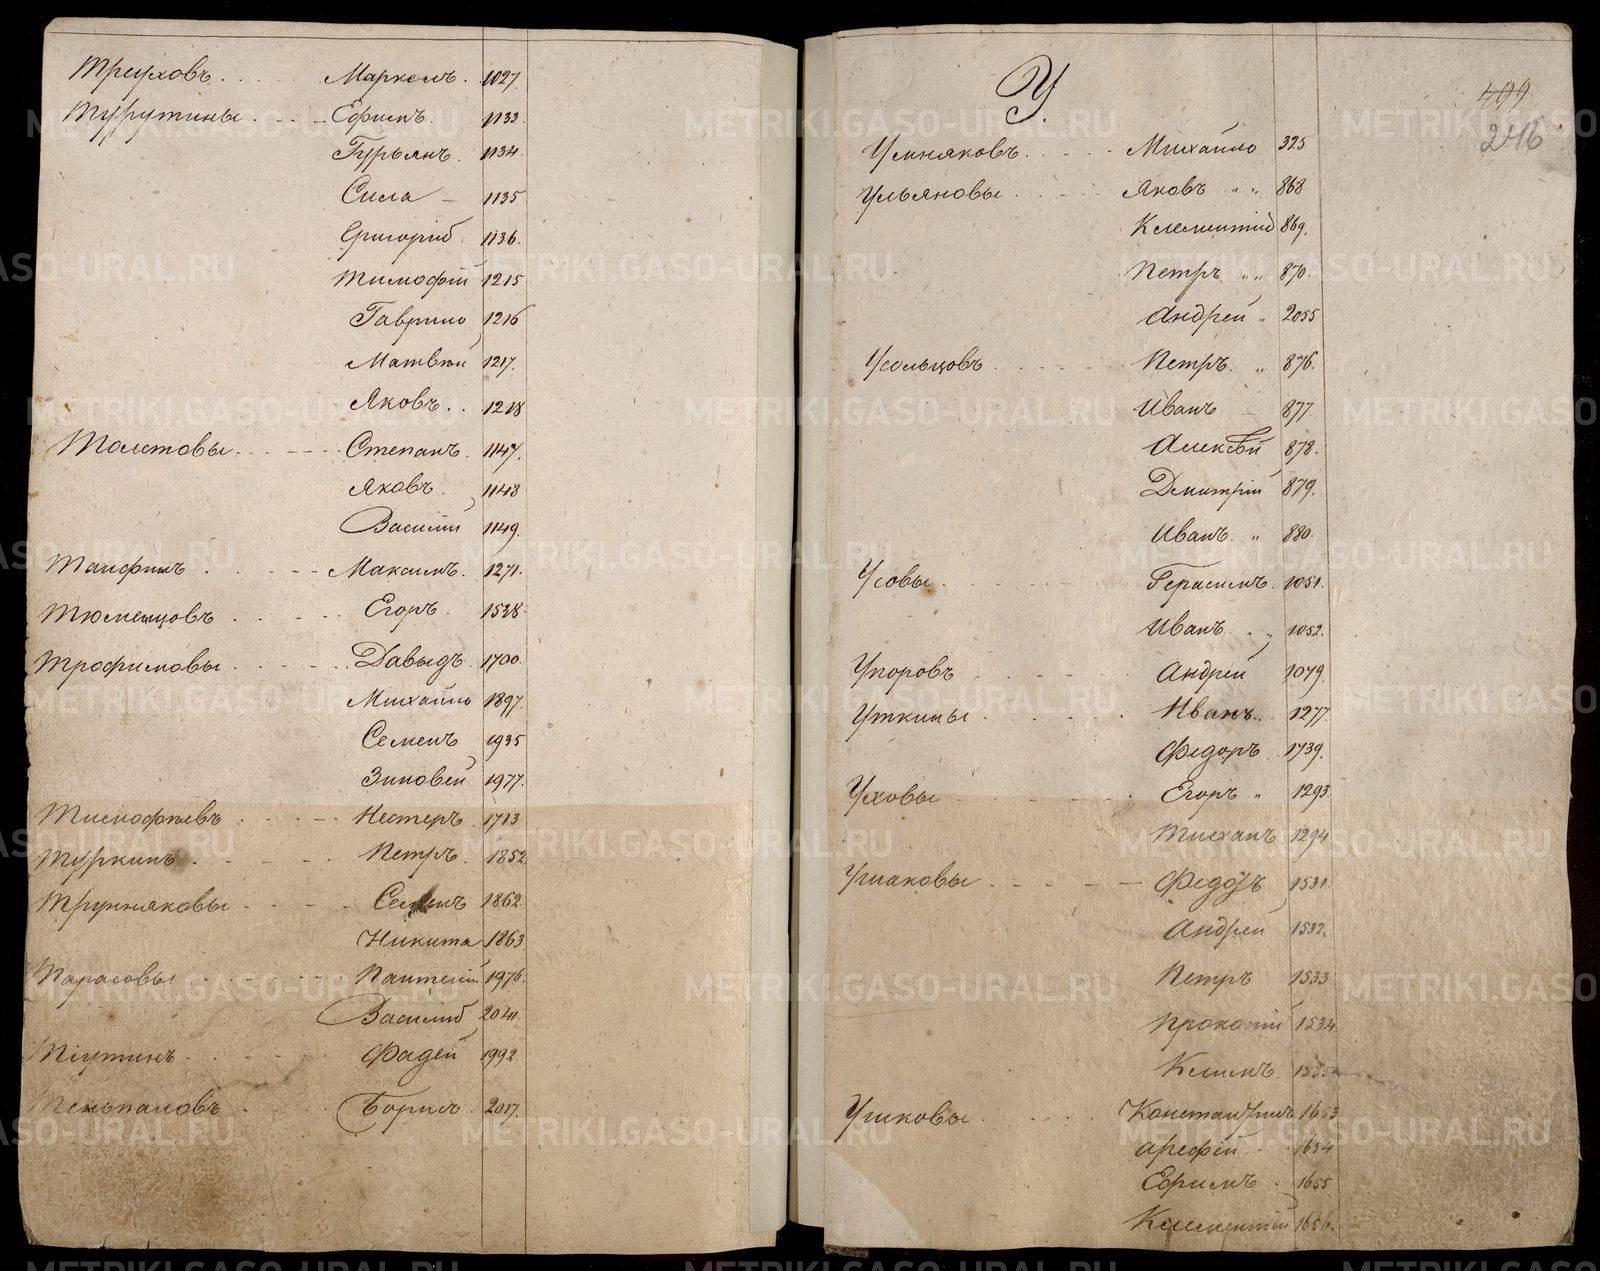 Треуховъ Маркелъ. 1027.
Турутины Ефимъ. 1133.
Гурьянъ. 1134.
Сила 1135
Григорий 1136.
Тимофей 1215
Гаврило 1216
Матвѣй 1217.
Яковъ 1218
Толстовы Степанъ. 1147.
Яковъ. 1148
Василий 1149.
Максимъ. 1271.
Тюменцовъ Егоръ. 1528
Трофимовы Давыдъ. 1700.
Михайло 1897.
Семенъ 1935
Зиновей 1977.
Тимофѣевъ Нестеръ 1713
Туркинъ Петръ. 1852
Семенъ 1862.
Никита 1863.
Тарасовы Пантелей 1976.
Василий 2041.
Фадей 1992.
Борисъ 2017.
У.
499
246
Умняковъ Михайло 325
Ульяновы Яковъ „ „ 868
Климентий 869.
Петръ „ „ 870.
Андрей „ 2055
Усольцовъ Петръ. „ 876.
Иванъ 877.
Алексѣй 878.
Дмитрий 879.
Иванъ. „ 880.
Усовы Герасимъ. 1051.
Иванъ. „ 1052.
Упоровъ Андрей 1079.
Уткины Иванъ. 1277
Федоръ. 1739.
Уховы Егоръ „ 1293.
Тиханъ 1294
Ушаковы Федоръ 1531.
Андрей 1532.
Петръ 1533
Прокопий 1534
Климъ 1535
Ушковы Константинъ 1653
Арефий 1654
Ефимъ. 1655
Климентий 1656.
METRIKI.GASO-URAL.RU